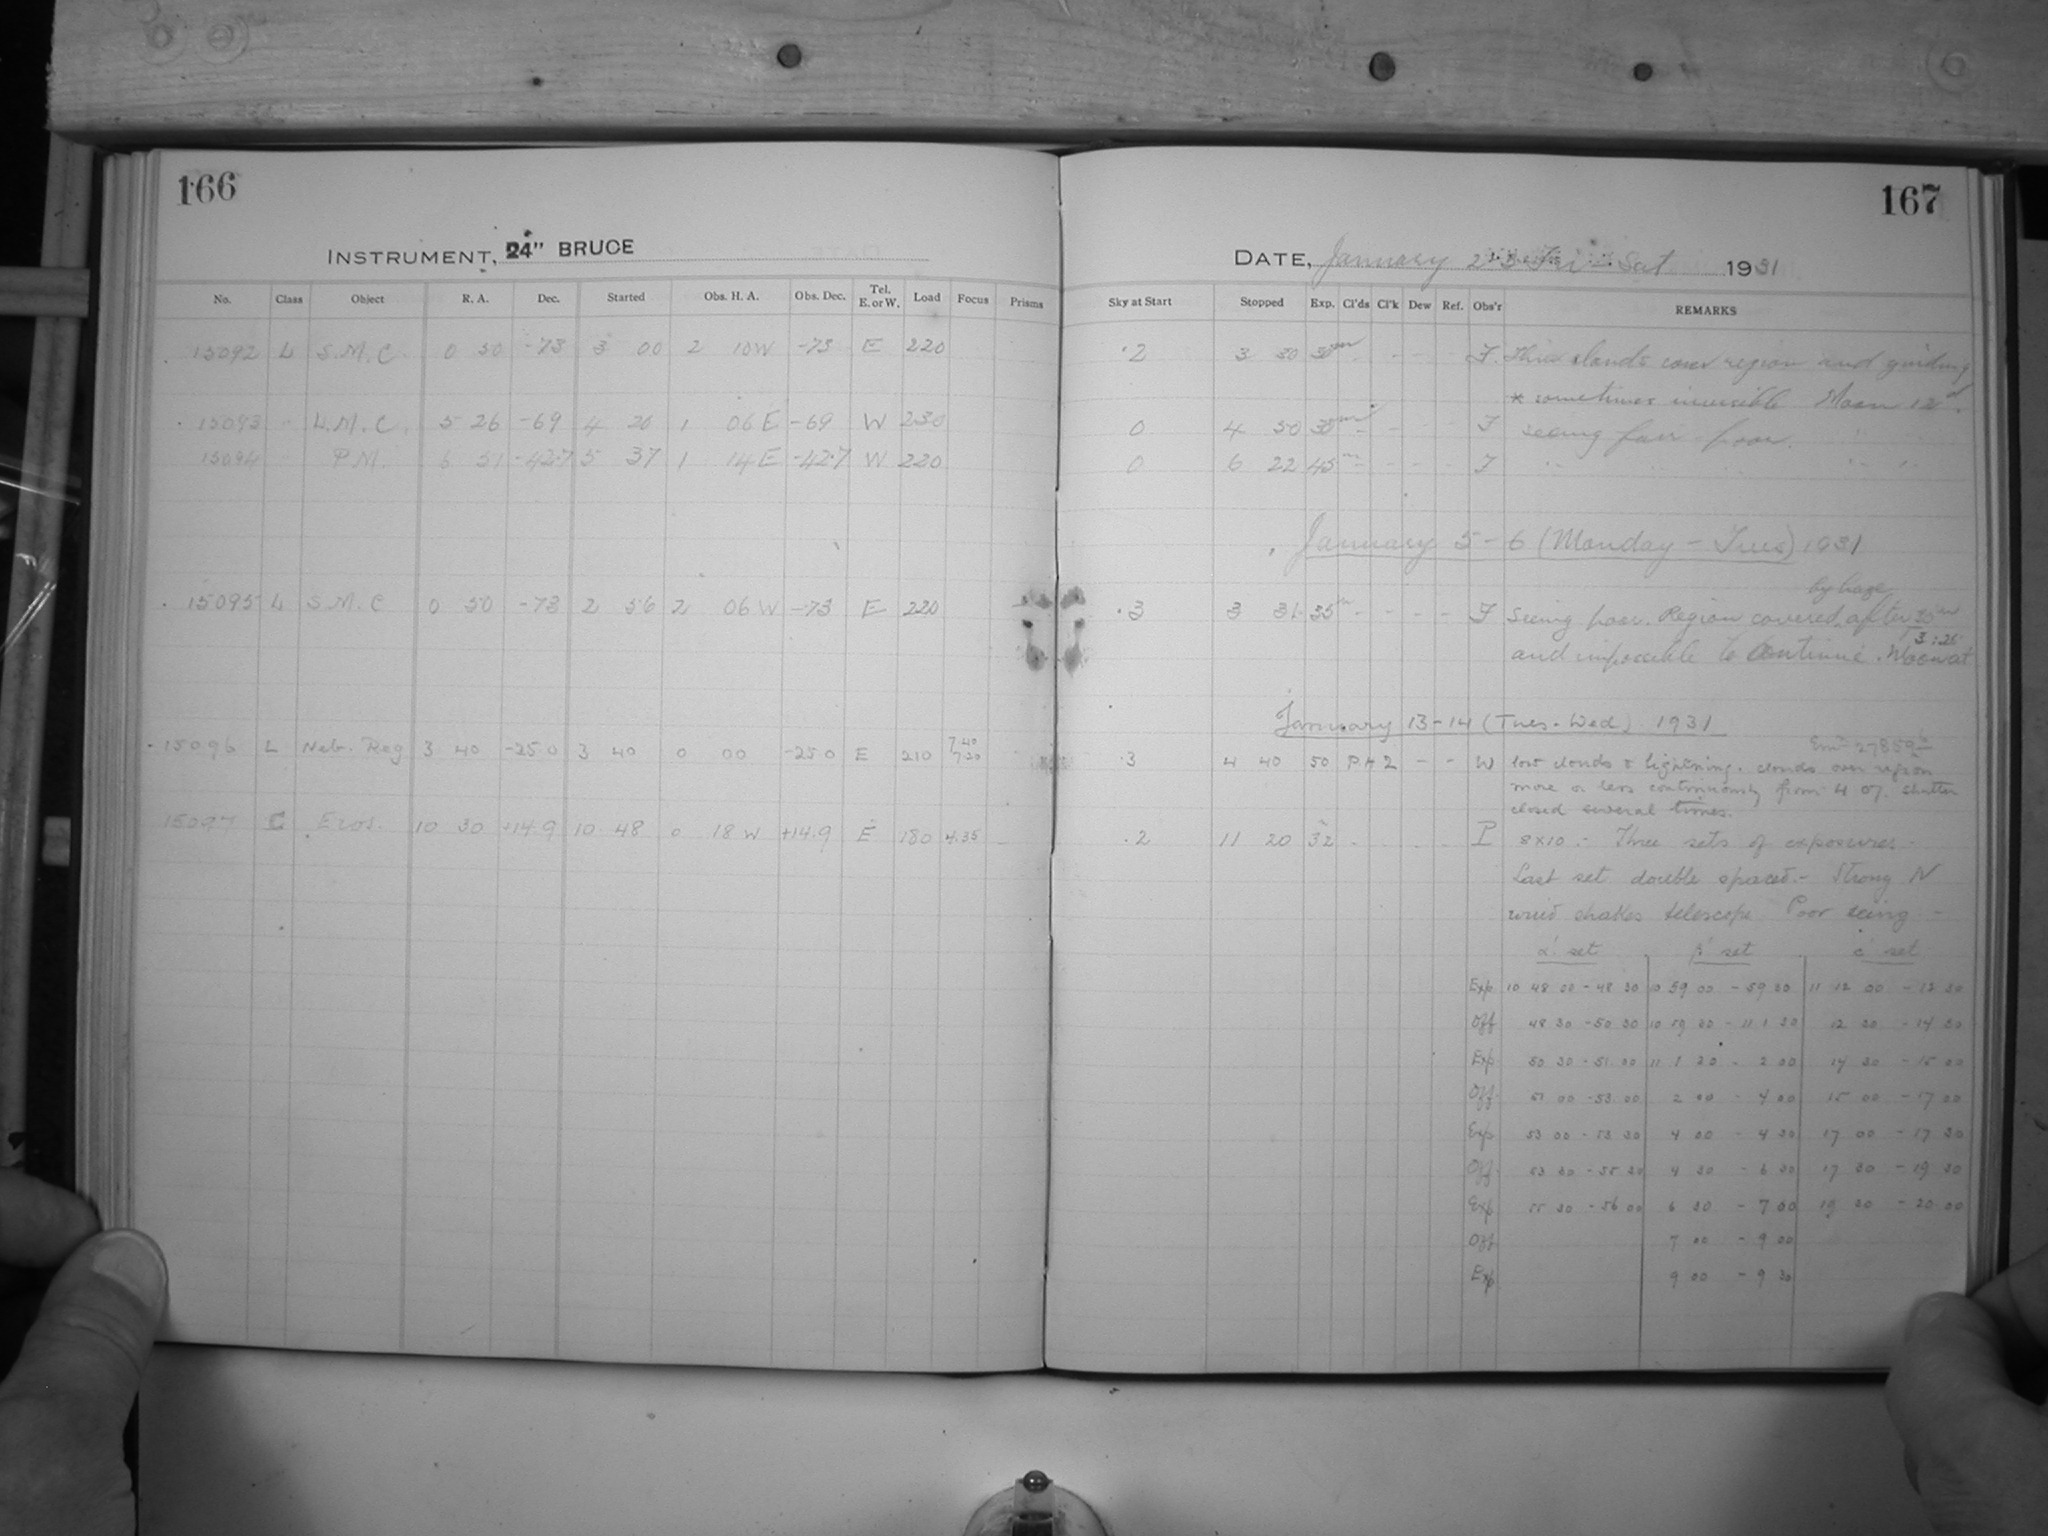 166
INSTRUMENT, 24" BRUCE
No. Class Object R. A. Dec. Started Obs. H. A. Obs. Dec. Tel. E. or W. Load Focus Prisms
15092 L S.M.C. 0 50 -73 3 00 2 10 W -73 E 220
15093 " L.M.C. 5 26 -69 4 20 1 06 E -69 W 230
15094 P.M. 6 51 -42.7 5 37 1 14 E -42.7 W 220
15095 L S.M.C 0 50 -73 2 56 2 06 W -73 E 220
15096 L Neb. Reg 3 40 -25 0 3 40 0 00 -25 0 E 210 7.40 7.20
15097 C Eros. 10 30 +14.9 10 48 0 18 W +14.9 E 180 4.35 -
167
DATE, January 2-3 Fri - Sat 1931
Sky at Start Stopped Exp. Cl'ds Cl'k Dew Ref. Obs'r REMARKS
.2 3 30 30m - - - - F. Thin clouds cover region and guiding
* sometimes invisible Moon 12d.
0 4 50 30m - - - - F seeing fair - poor.
0 6 22 45m - - - - F " " " "
January 5-6 (Monday - Tues) 1931
by haze
.3 3 31 35m - - - - F Seeing poor. Region covered after 30m
3:25
and impossible to continue. Moon at
January 13-14 (Tues. Wed) 1931
.3 4 40 50 P H 2 - - W low clouds & lightning. clouds over region
more or less continuously from 4 07. shutter
closed several times.
.2 11 20 32 - - - - P 8x10 - Three sets of exposures -
Last set double spaced - Strong N
wind shakes telescope Poor seeing -
a' set b' set c' set
Exp 10 48 00 - 48 30 10 59 00 - 59 30 11 12 00 - 12 30
Off 48 30 - 50 30 10 59 30 - 11 1 30 12 30 - 14 30
Exp 50 30 - 51 00 11 1 30 - 2 00 14 30 - 15 00
Off 51 00 - 53 00 2 00 - 4 00 15 00 - 17 00
Exp 53 00 - 53 30 4 00 - 4 30 17 00 - 17 30
Off 53 30 - 55 30 4 30 - 6 30 17 30 - 19 30
Exp 55 30 - 56 00 6 30 - 7 00 19 30 - 20 00
Off 7 00 - 9 00
Exp 9 00 - 9 30